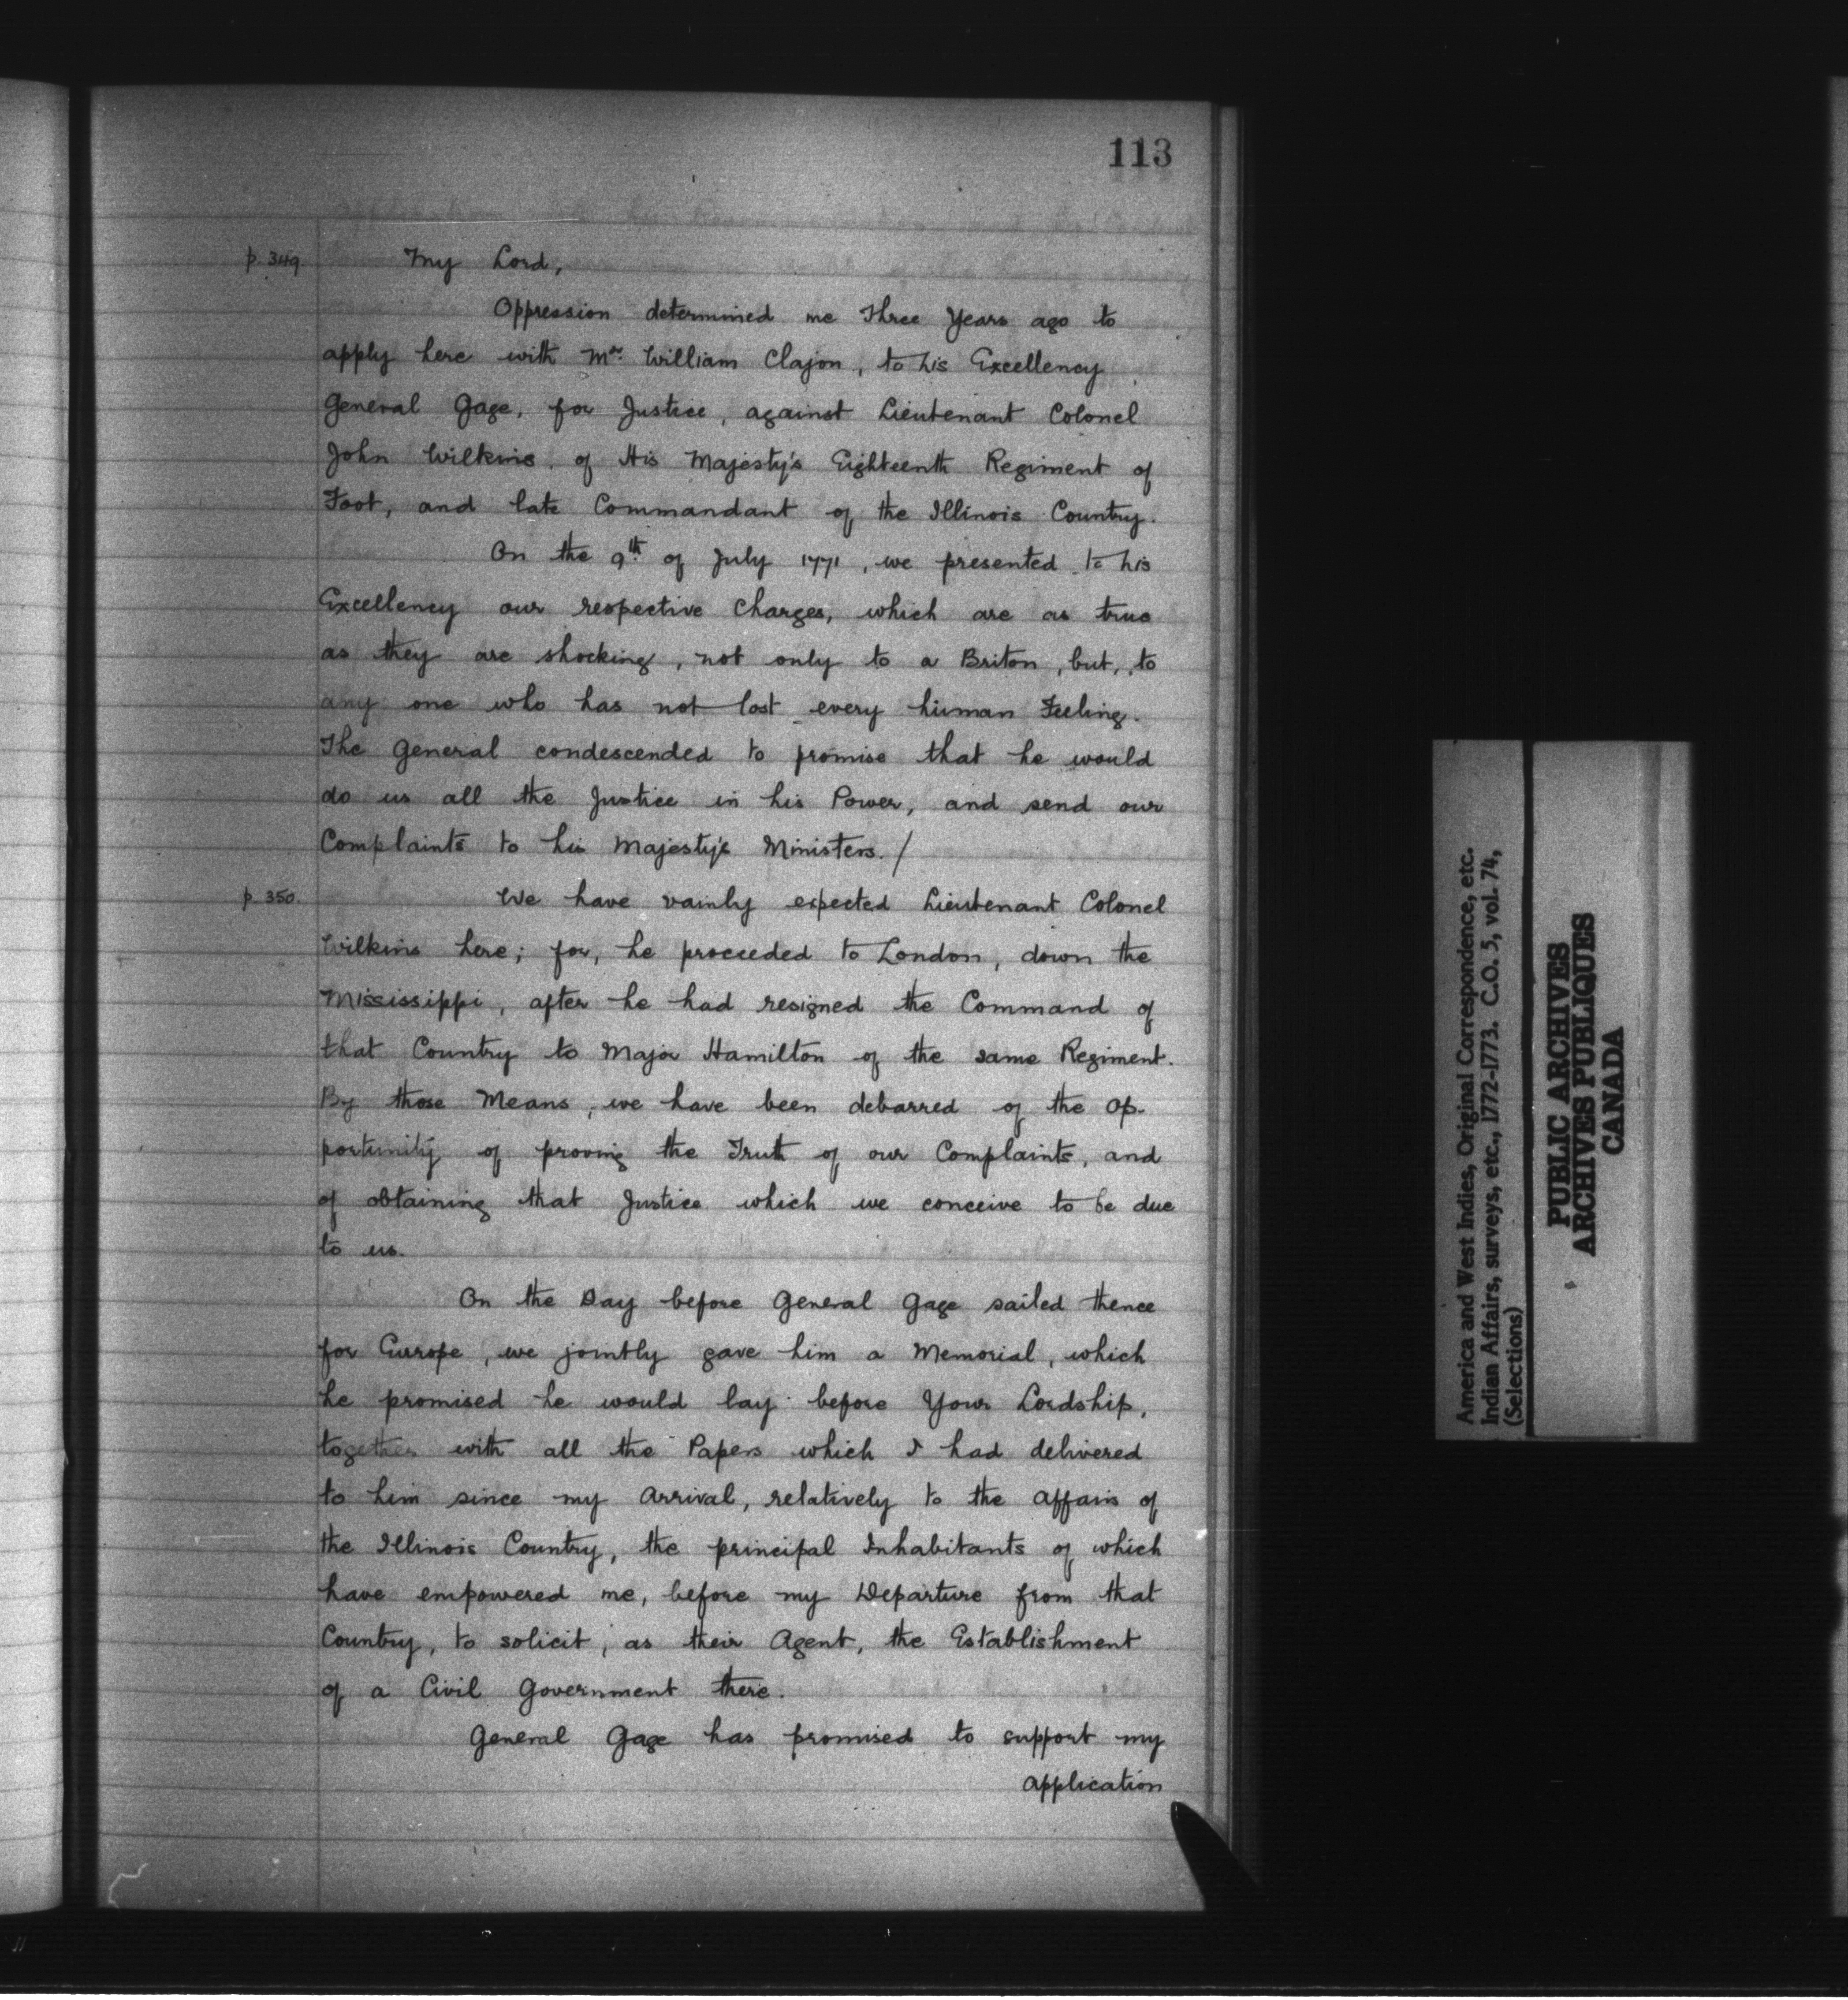 113
p. 349. My Lord,
Oppression determined me Three Years ago to
apply here with Mr. William Clajon, to his Excellency
General Gage, for Justice, against Lieutenant Colonel
John Wilkins, of His Majesty's Eighteenth Regiment of
Foot, and late Commandant of the Illinois Country.
On the 9th of July 1771, we presented to his
Excellency our respective Charges, which are as true
as they are shocking, not only to a Briton, but, to
any one who has not lost every human Feeling.
The General condescended to promise that he would
do us all the Justice in his Power, and send our
Complaints to his Majesty's Ministers. /
p. 350. We have vainly expected Lieutenant Colonel
Wilkins here; for, he proceeded to London, down the
Mississippi, after he had resigned the Command of
that Country to Major Hamilton of the same Regiment.
By those Means, we have been debarred of the op-
portunity of proving the Truth of our Complaints, and
of obtaining that Justice which we conceive to be due
to us.
On the Day before General Gage sailed thence
for Europe, we jointly gave him a Memorial, which
he promised he would lay before Your Lordship,
together with all the Papers which I had delivered
to him since my Arrival, relatively to the Affairs of
the Illinois Country, the principal Inhabitants of which
have empowered me, before my Departure from that
Country, to solicit, as their Agent, the Establishment
of a Civil Government there.
General Gage has promised to support my
Application
America and West Indies, Original Correspondence, etc.
Indian Affairs, surveys, etc., 1772-1773. C.O. 5, vol. 74,
(Selections)
PUBLIC ARCHIVES
ARCHIVES PUBLIQUES
CANADA